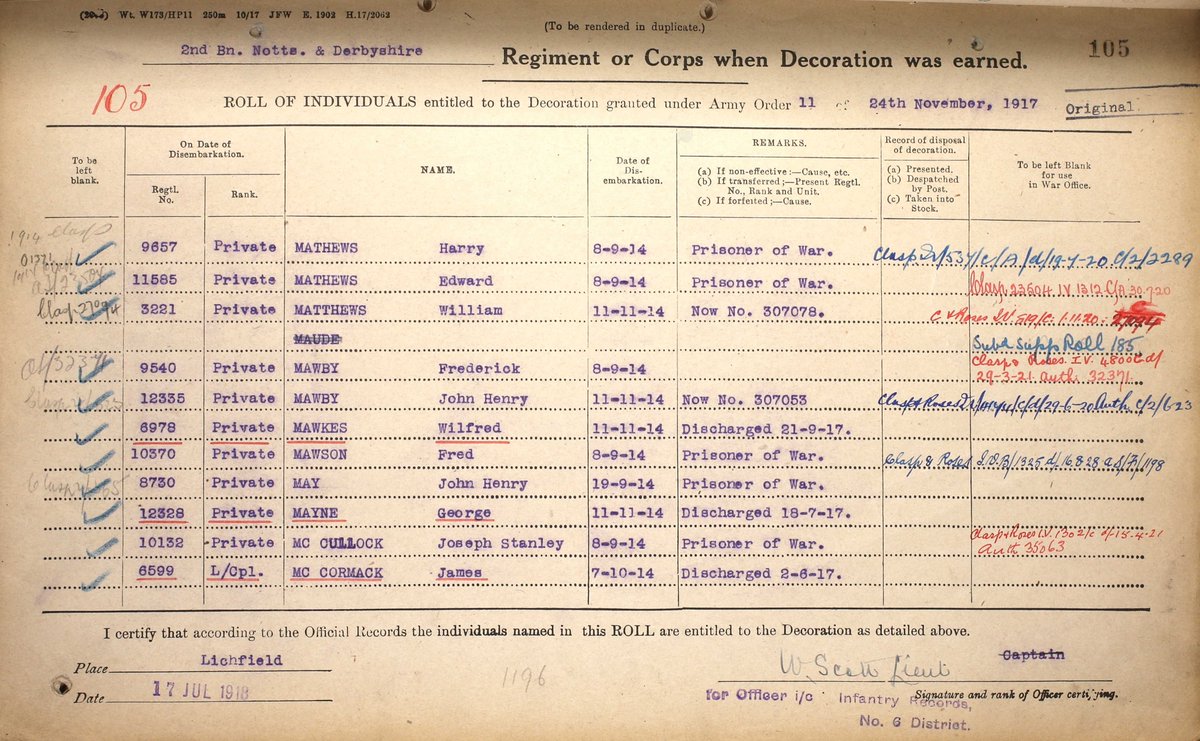 (2094) Wt. W173/HP11 250m 10/17 JFW E. 1902 H.17/2062
(To be rendered in duplicate.)
2nd Bn. Notts. & Derbyshire Regiment or Corps when Decoration was earned.
105
105
ROLL OF INDIVIDUALS entitled to the Decoration granted under Army Order 11 of 24th November, 1917
Original
To be left blank.
On Date of Disembarkation.
Regtl. No.
Rank.
NAME.
Date of Dis-embarkation.
REMARKS.
(a) If non-effective:—Cause, etc.
(b) If transferred;—Present Regtl. No., Rank and Unit.
(c) If forfeited;—Cause.
Record of disposal of decoration.
(a) Presented.
(b) Despatched by Post.
(c) Taken into Stock.
To be left Blank for use in War Office.
1914 Clasp
9657 Private MATHEWS Harry 8-9-14 Prisoner of War. C/2/2289
11585 Private MATHEWS Edward 8-9-14 Prisoner of War. Clasp 23604 IV 1312 C/A 30.7.20
3221 Private MATTHEWS William 11-11-14 Now No. 307078. C & Roses IV 519/C 1.11.20
MAUDE
Subd Supp Roll 185
9540 Private MAWBY Frederick 8-9-14 Clasp & Roses I.V. 4800C d/ 29-3-21 Auth 32371
12335 Private MAWBY John Henry 11-11-14 Now No. 307053 Clasp & Roses 29-6-20 Auth C/2/623
6978 Private MAWKES Wilfred 11-11-14 Discharged 21-9-17.
10370 Private MAWSON Fred 8-9-14 Prisoner of War. Clasp & Roses I.V.B/1325 d/ 16.8.28
8730 Private MAY John Henry 19-9-14 Prisoner of War.
12328 Private MAYNE George 11-11-14 Discharged 18-7-17.
10132 Private MC CULLOCK Joseph Stanley 8-9-14 Prisoner of War. Clasp & Roses I.V. 1302/C d/ 15-4-21 Auth 35063
6599 L/Cpl. MC CORMACK James 7-10-14 Discharged 2-6-17.
I certify that according to the Official Records the individuals named in this ROLL are entitled to the Decoration as detailed above.
Place Lichfield
Date 17 JUL 1918
1196
W. Scott Lieut
Captain
Signature and rank of Officer certifying.
for Officer i/c Infantry Records,
No. 6 District.